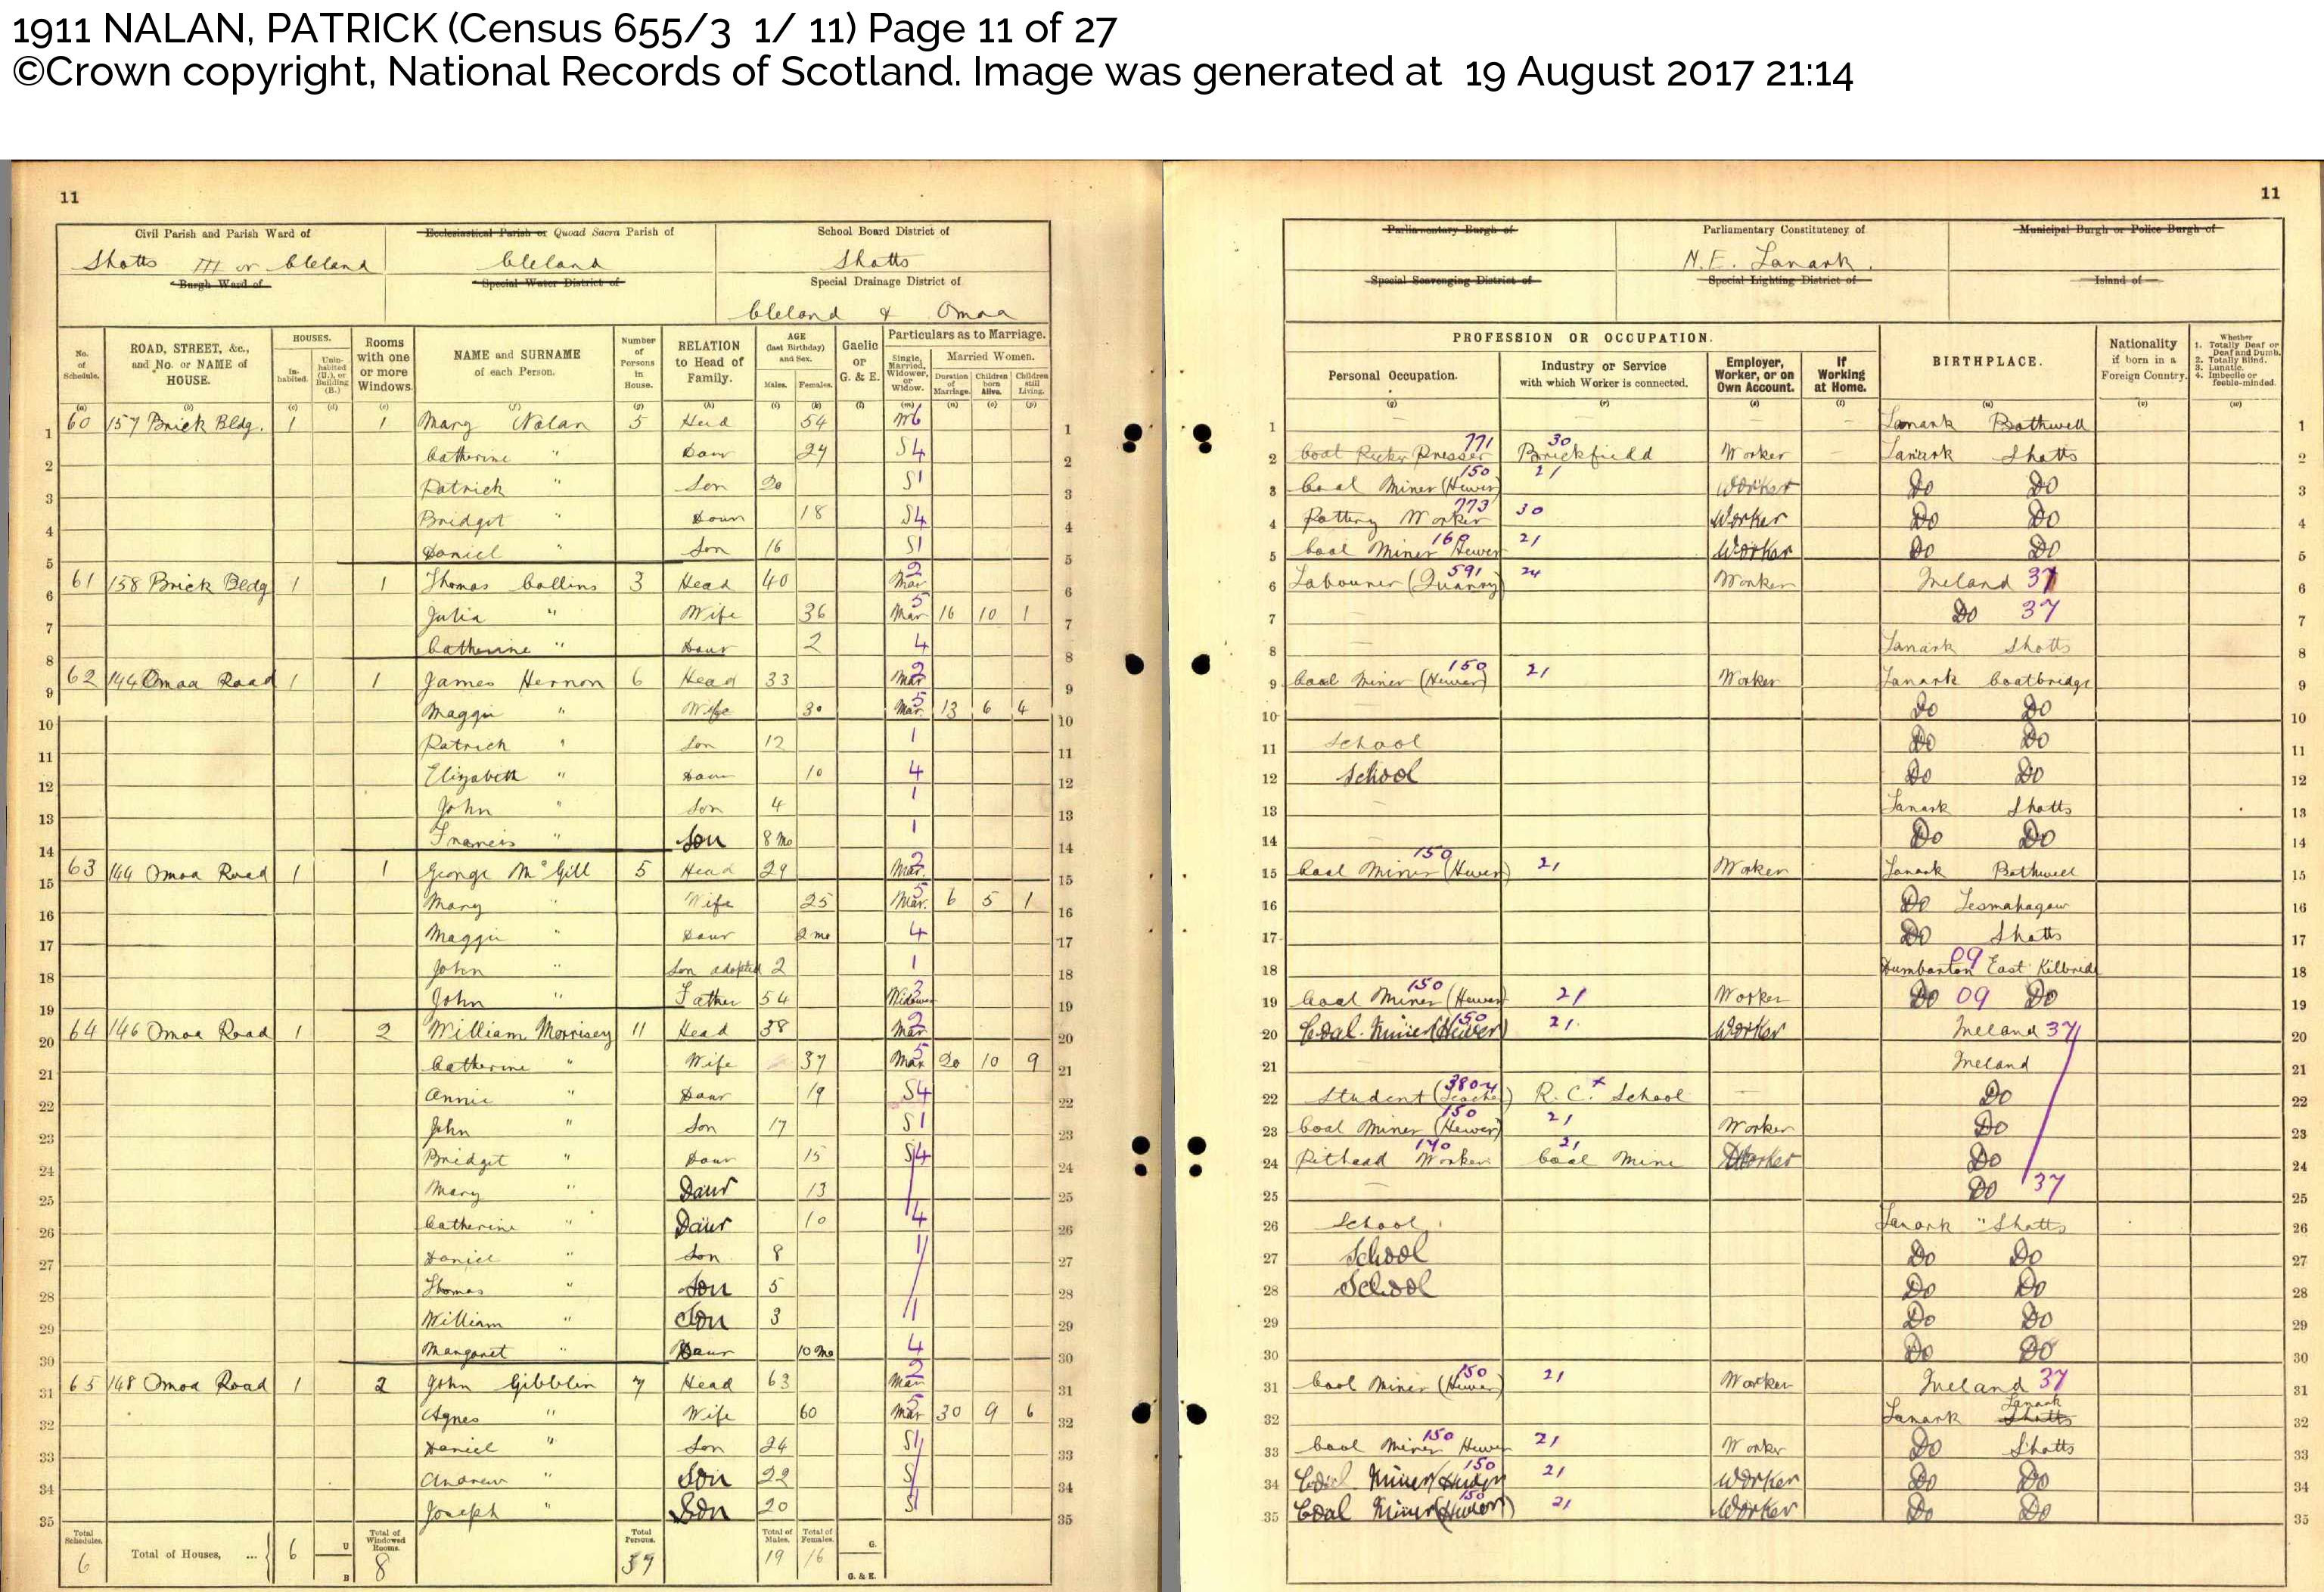 1911 NALAN, PATRICK (Census 655/3 1/ 11) Page 11 of 27
©Crown copyright, National Records of Scotland. Image was generated at 19 August 2017 21:14
11
Civil Parish and Parish Ward of Ecclesiastical Parish or Quoad Sacra Parish of School Board District of
Shotts III or Cleland Cleland Shotts
Burgh Ward of Special Water District of Special Drainage District of
Cleland & Omoa
No. of Schedule. ROAD, STREET, &c., and No. or NAME of HOUSE. HOUSES. Inhabited. Uninhabited (U.), or Building (B.) Rooms with one or more Windows. NAME and SURNAME of each Person. Number of Persons in House. RELATION to Head of Family. AGE (last Birthday) and Sex. Males. Females. Gaelic or G. & E. Particulars as to Marriage. Single, Married, Widower, or Widow. Married Women. Duration of Marriage. Children born Alive. Children still Living.
(a) (b) (c) (d) (e) (f) (g) (h) (i) (k) (l) (m) (n) (o) (p)
1 60 157 Brick Bldg. 1 1 Mary Nolan 5 Head 54 W6 1
2 Catherine " Daur 24 S4 2
3 Patrick " Son 20 S1 3
4 Bridget " Daur 18 S4 4
5 Daniel " Son 16 S1 5
6 61 158 Brick Bldg 1 1 Thomas Collins 3 Head 40 Mar 2 6
7 Julia " Wife 36 Mar 5 16 10 1 7
8 Catherine " Daur 2 4 8
9 62 144 Omoa Road 1 1 James Hernon 6 Head 33 Mar 2 9
10 Maggie " Wife 30 Mar. 5 13 6 4 10
11 Patrick " Son 12 1 11
12 Elizabeth " Daur 10 4 12
13 John " Son 4 1 13
14 Francis " Son 8 Mo 1 14
15 63 144 Omoa Road 1 1 George McGill 5 Head 29 Mar. 2 15
16 Mary " Wife 25 Mar. 5 6 5 1 16
17 Maggie " Daur 2 mo 4 17
18 John " Son adopted 2 1 18
19 John " Father 54 Widower 3 19
20 64 146 Omoa Road 1 2 William Morrisey 11 Head 38 Mar 2 20
21 Catherine " Wife 37 Mar 5 20 10 9 21
22 Annie " Daur 19 S4 22
23 John " Son 17 S1 23
24 Bridget " Daur 15 S4 24
25 Mary " Daur 13 25
26 Catherine " Daur 10 4 26
27 Daniel " Son 8 1 27
28 Thomas " Son 5 28
29 William " Son 3 1 29
30 Margaret " Daur 10 Mo 4 30
31 65 148 Omoa Road 1 2 John Gibblin 7 Head 63 Mar 2 31
32 Agnes " Wife 60 Mar 5 30 9 6 32
33 Daniel " Son 24 S1 33
34 Andrew " Son 22 S 34
35 Joseph " Son 20 S1 35
Total Schedules. 6 Total of Houses, ... 6 U B Total of Windowed Rooms. 8 Total Persons. Total of Males. 19 Total of Females. 16 G. G. & E.
11
Parliamentary Burgh of Parliamentary Constituency of Municipal Burgh or Police Burgh of
N.E. Lanark.
Special Scavenging District of Special Lighting District of Island of
PROFESSION OR OCCUPATION. BIRTHPLACE. Nationality if born in a Foreign Country. Whether 1. Totally Deaf or Deaf and Dumb. 2. Totally Blind. 3. Lunatic. 4. Imbecile or feeble-minded.
Personal Occupation. Industry or Service with which Worker is connected. Employer, Worker, or on Own Account. If Working at Home.
(q) (r) (s) (t) (u) (v) (w)
1 Lanark Bothwell 1
2 771 30 Brickfield Worker Lanark Shotts 2
3 Coal Miner (Hewer) 150 21 Worker Do Do 3
4 Pottery Worker 773 30 Worker Do Do 4
5 Coal Miner Hewer 21 Worker Do Do 5
6 Labourer (Quarry) 591 24 Worker Ireland 37 6
7 Do 37 7
8 Lanark Shotts 8
9 Coal Miner (Hewer) 150 21 Worker Lanark Coatbridge 9
10 Do Do 10
11 School Do Do 11
12 School Do Do 12
13 Lanark Shotts 13
14 Do Do 14
15 Coal Miner (Hewer) 150 21 Worker Lanark Bothwell 15
16 Do Lesmahagow 16
17 Do Shotts 17
18 Dumbarton 09 East Kilbride 18
19 Coal Miner (Hewer) 150 21 Worker Do 09 Do 19
20 Coal Miner (Hewer) 150 21 Worker Ireland 37 20
21 Ireland 21
22 Student (Teacher) R. C. School Do 22
23 Coal Miner (Hewer) 150 21 Worker Do 23
24 Pithead Worker 170 Coal Mine 21 Worker Do 24
25 Do 37 25
26 School Lanark " Shotts 26
27 School Do Do 27
28 School Do Do 28
29 Do Do 29
30 Do Do 30
31 Coal Miner (Hewer) 150 21 Worker Ireland 37 31
32 Lanark Shotts Lanark 32
33 Coal Miner Hewer 150 21 Worker Do Shotts 33
34 Coal Miner (Hewer) 150 21 Worker Do Do 34
35 Coal Miner (Hewer) 150 21 Worker Do Do 35